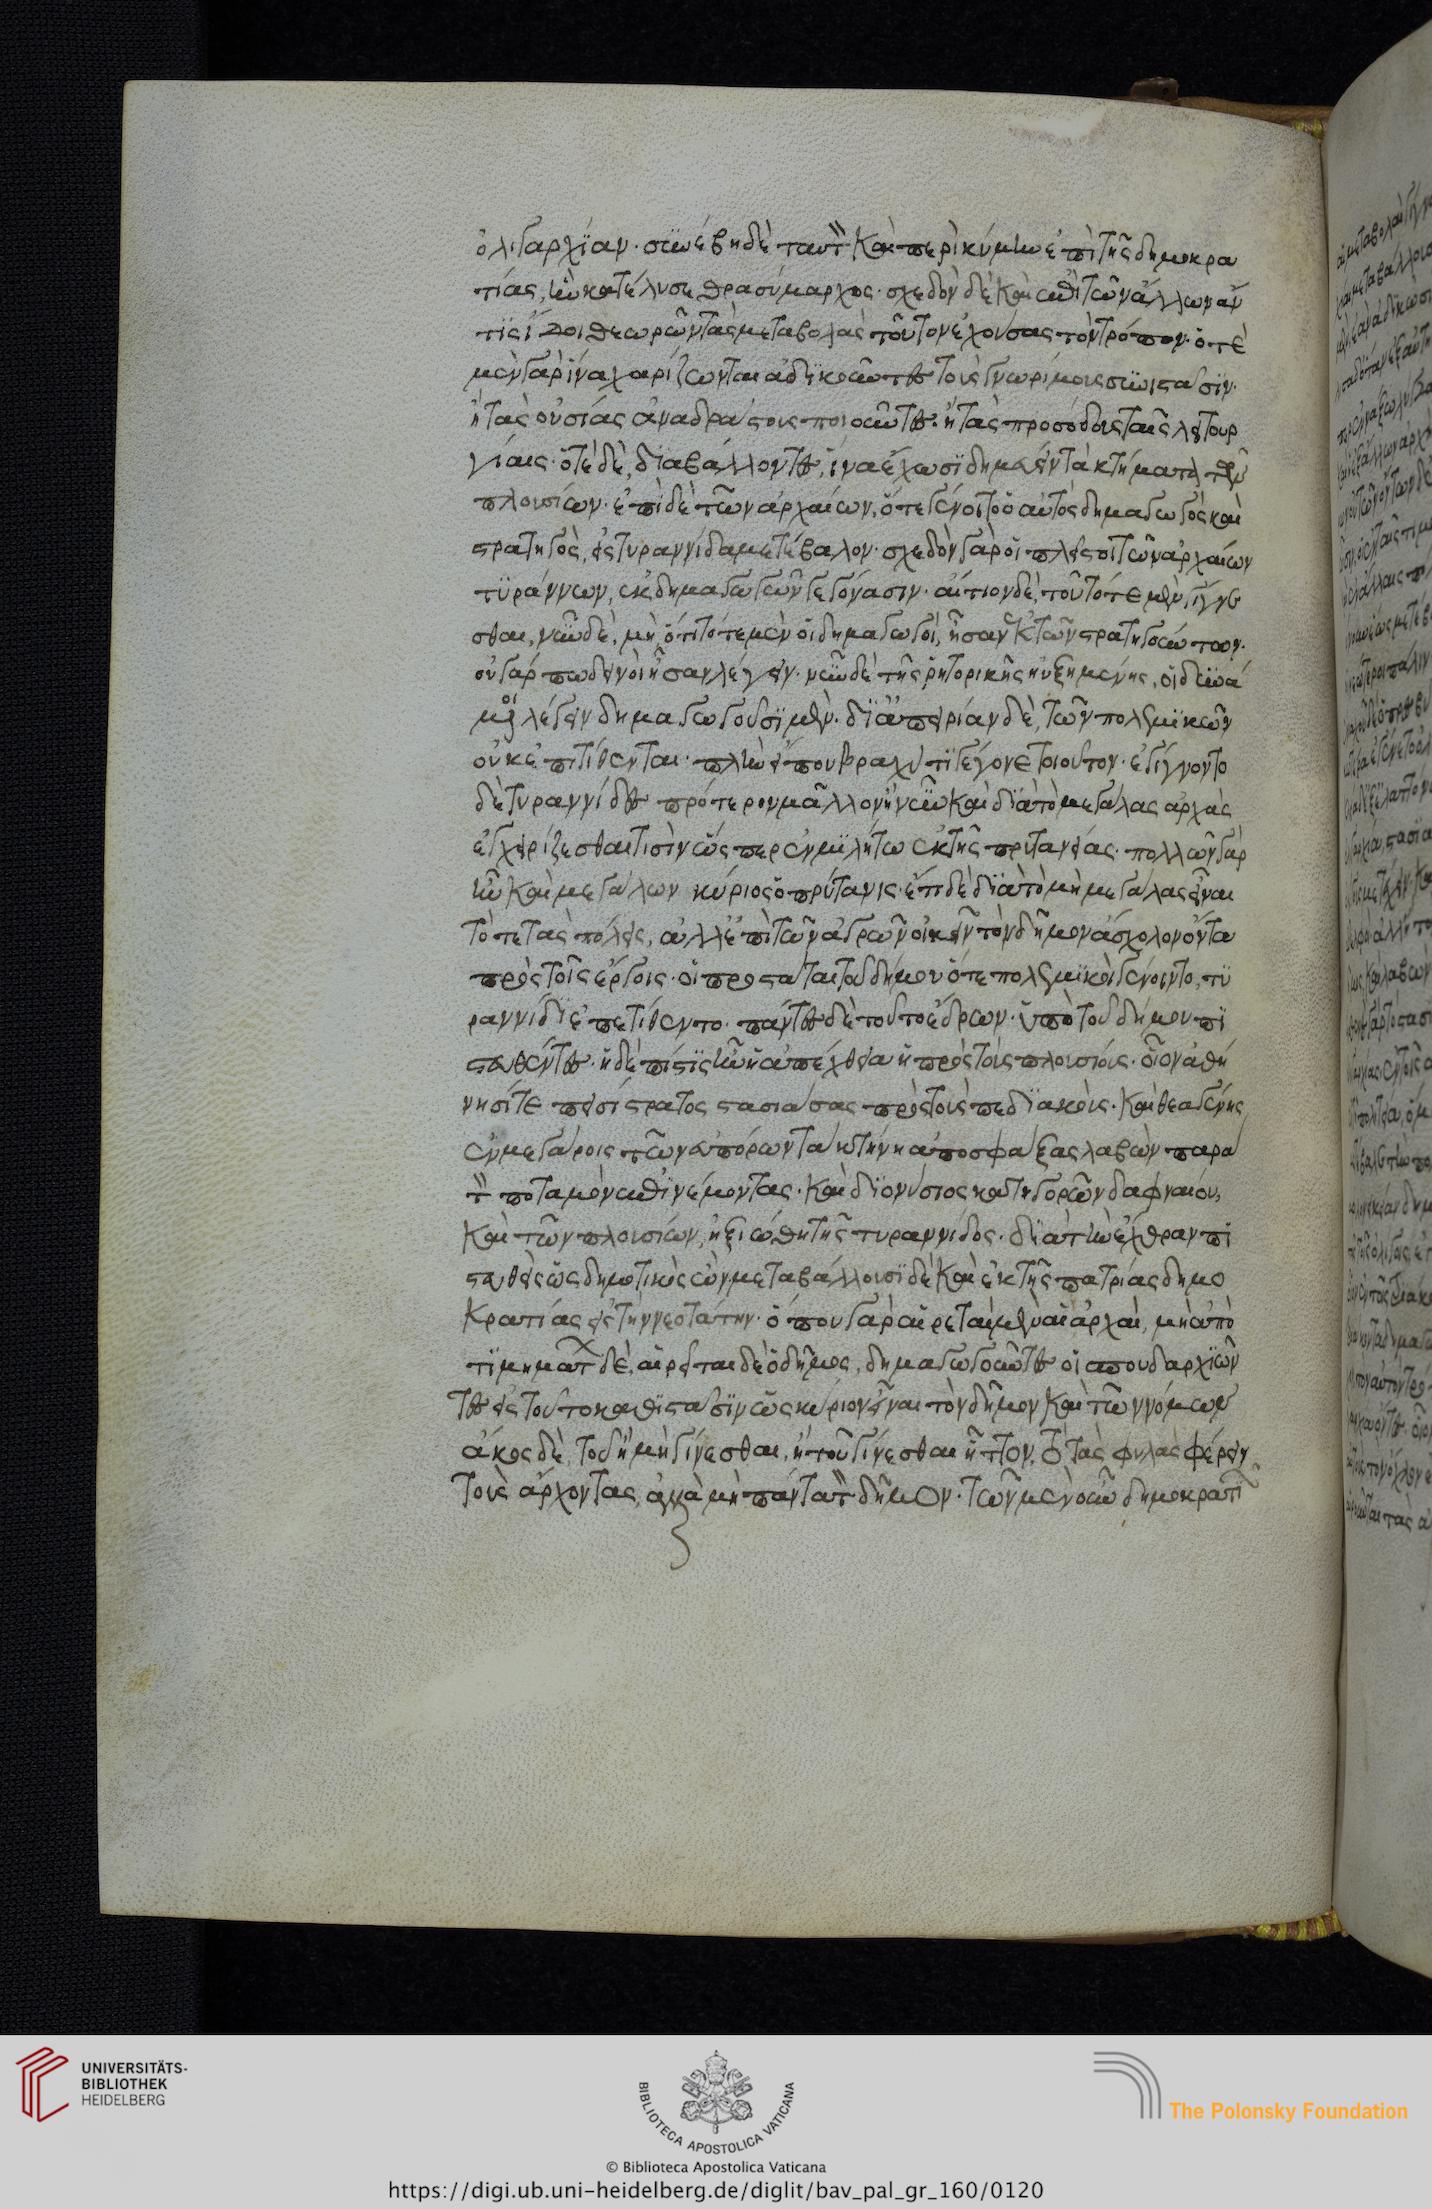 ὀλιγαρχίαν. συνέβη δὲ ταυτὸν καὶ περὶ κύμην ἐπὶ τῆς δημοκρα
τίας, ἣν κατέλυσε θρασύμαχος. σχεδὸν δὲ καὶ ἐπὶ τῶν ἄλλων ἄν
τις ἴδοι θεωρῶν τὰς μεταβολὰς τοῦτον ἐχούσας τὸν τρόπον. ὁτὲ
μὲν γὰρ ἵνα χαρίζωνται ἀδικοῦντες τοὺς γνωρίμους συνιστᾶσιν.
ἢ τὰς οὐσίας ἀναδάστους ποιοῦντες. ἢ τὰς προσόδους ταῖς λειτουρ
γίαις. ὁτὲ δὲ, διαβάλλοντες, ἵνα ἔχωσι δημεύειν τὰ κτήματα τῶν
πλουσίων. ἐπὶ δὲ τῶν ἀρχαίων, ὅτε γένοιτο ὁ αὐτὸς δημαγωγὸς καὶ
στρατηγὸς, εἰς τυραννίδα μετέβαλον. σχεδὸν γὰρ οἱ πλεῖστοι τῶν ἀρχαίων
τυράννων, ἐκ δημαγωγῶν γεγόνασιν. αἴτιον δὲ, τοῦ τότε μὲν γίγνε
σθαι, νῦν δὲ, μὴ, ὅτι τότε μὲν οἱ δημαγωγοὶ, ἦσαν ἐκ τῶν στρατηγούντων.
οὐ γάρ πω δεινοὶ ἦσαν λέγειν. νῦν δὲ τῆς ῥητορικῆς ηὐξημένης, οἱ δυνά
μενοι λέγειν δημαγωγοῦσι μὲν. δι' ἀπειρίαν δὲ, τῶν πολεμικῶν
οὐκ ἐπιτίθενται. πλὴν εἴ που βραχύ τι γέγονε τοιοῦτον. ἐγίγνοντο
δὲ τυραννίδες πρότερον μᾶλλον ἢ νῦν καὶ διὰ τὸ μεγάλας ἀρχὰς
ἐγχειρίζεσθαι τισὶν ὥσπερ ἐν μιλήτω ἐκ τῆς πρυτανείας. πολλῶν γὰρ
ἦν καὶ μεγάλων κύριος ὁ πρύτανις. ἔτι δὲ διὰ τὸ μὴ μεγάλας εἶναι
τότε τὰς πόλεις, ἀλλ' ἐπὶ τῶν ἀγρῶν οἰκεῖν τὸν δῆμον ἄσχολον ὄντα
πρὸς τοῖς ἔργοις. οἱ προστάται τοῦ δήμου ὅτε πολεμικοὶ γένοιντο, τυ
ραννίδι ἐπετίθεντο. πάντες δὲ τοῦτο ἔδρων. ὑπὸ τοῦ δήμου πι
στευθέντες. ἡ δὲ πίστις ἦν ἡ ἀπέχθεια ἡ πρὸς τοὺς πλουσίους. οἷον ἀθή
νησί τε πεισίστρατος στασιάσας πρὸς τοὺς πεδιακοὺς. καὶ θεαγένης
ἐν μεγάροις τῶν εὐπόρων τὰ κτήνη ἀποσφάξας λαβὼν παρὰ
τὸν ποταμὸν ἐπινέμοντας. καὶ διονύσιος κατηγορῶν δαφναίου,
καὶ τῶν πλουσίων, ἠξιώθη τῆς τυραννίδος. διὰ τὴν ἔχθραν πι
στευθεὶς ὡς δημοτικὸς ὤν. μεταβάλλουσι δὲ καὶ ἐκ τῆς πατρίας δημο
κρατίας εἰς τὴν νεοτάτην. ὅπου γὰρ αἱρεταὶ μὲν αἱ ἀρχαὶ, μὴ ἀπὸ
τιμημάτων δὲ, αἱρεῖται δὲ ὁ δῆμος, δημαγωγοῦντες οἱ σπουδαρχιῶν
τες εἰς τοῦτο καθιστᾶσιν ὡς κύριον εἶναι τὸν δῆμον καὶ τῶν νόμων
ἄκος δὲ τοῦ ἢ μὴ γίνεσθαι, ἢ τοῦ γίνεσθαι ἧττον, τὸ τὰς φυλὰς φέρειν
τοὺς ἄρχοντας, ἀλλὰ μὴ πάντα τὸν δῆμον. τῶν μὲν οὖν δημοκρατι
UNIVERSITÄTS-
BIBLIOTHEK
HEIDELBERG
BIBLIOTECA APOSTOLICA VATICANA
The Polonsky Foundation
© Biblioteca Apostolica Vaticana
https://digi.ub.uni-heidelberg.de/diglit/bav_pal_gr_160/0120